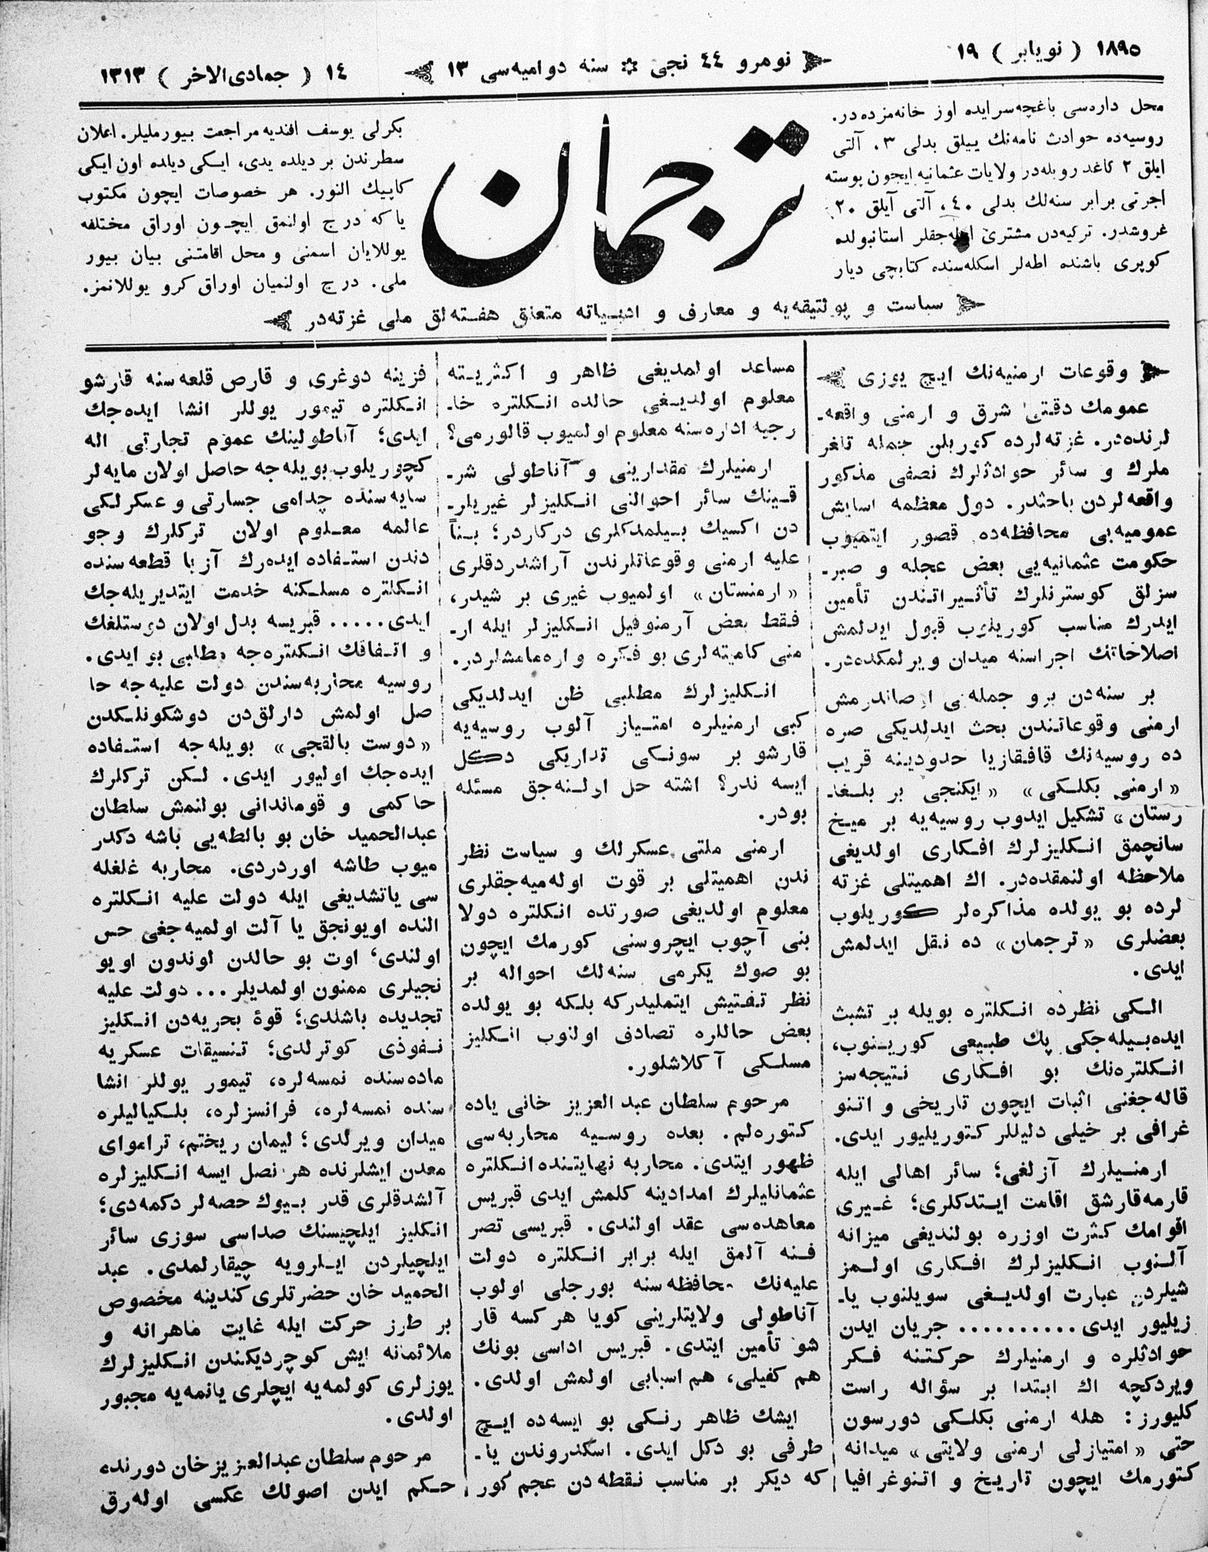 ١٨٩٥ ( نويابر ) ١٩
نومرو ٤٤ نجى ✼ سنه دواميه‌سى ١٣
١٤ ( جمادى‌الاخر ) ١٣١٣
محل داره‌سى باغچه‌سرايده اوز خانه‌مزده‌در.
روسيه‌ده حوادث نامه‌نك ييلق بدلى ٣. آلتى
ايلق ٢ كاغد روبله‌در ولايات عثمانيه ايچون پوسته
اجرتى برابر سنه‌لك بدلى ٤٠، آلتى آيلق ٢٠
غروشدر. تركيه‌دن مشترى اوله‌جقلر استانبولده
كوپرى باشنده اطه‌لر اسكله‌سنده كتابچى ديار
ترجمان
بكرلى يوسف افنديه مراجعت بيورمليلر. اعلان
سطرندن بر ديلده يدى، ايكى ديلده اون ايكى
كاپيك النور. هر خصوصات ايچون مكتوب
ياكه درج اولنمق ايچون اوراق مختلفه
يوللايان اسمنى و محل اقامتنى بيان بيور
ملى. درج اولنميان اوراق كرو يوللانمز.
سياست و پولتيقه‌يه و معارف و ادبياته متعلق هفته‌لق ملى غزته‌در
وقوعات ارمنيه‌نك ايچ يوزى
عمومك دقتى شرق و ارمنى واقعه‌ـ
لرنده‌در. غزته‌لرده كوريلن جمله تلغر
ملرك و سائر حوادثلرك نصفى مذكور
واقعه‌لردن باحثدر. دول معظمه اسايش
عموميه‌يى محافظه‌ده قصور ايتميوب
حكومت عثمانيه‌يى بعض عجله و صبرـ
سزلق كوسترنلرك تأثيراتندن تأمين
ايدرك مناسب كوريلوب قبول ايدلمش
اصلاحاتك اجراسنه ميدان ويرلمكده‌در.
بر سنه‌دن برو جمله‌يى اوصاندرمش
ارمنى وقوعاتندن بحث ايدلديكى صره
ده روسيه‌نك قافقازيا حدودينه قريب
«ارمنى بكلكى» «ايكنجى بر بلغاـ
رستان» تشكيل ايدوب روسيه‌يه بر ميخ
سانچمق انكليزلرك افكارى اولديغى
ملاحظه اولنمقده‌در. اك اهميتلى غزته
لرده بو يولده مذاكره‌لر كوريلوب
بعضلرى «ترجمان» ده نقل ايدلمش
ايدى.
الكى نظرده انكلتره بويله بر تشبث
ايده‌بيله‌جكى پك طبيعى كورينوب،
انكلتره‌نك بو افكارى نتيجه‌سز
قاله‌جغنى اثبات ايچون تاريخى و اتنو
غرافى بر خيلى دليللر كتوريليور ايدى.
ارمنيلرك آزلغى؛ سائر اهالى ايله
قارمه‌قارشق اقامت ايتدكلرى؛ غيرى
اقوامك كثرت اوزره بولنديغى ميزانه
آلنوب انكليزلرك افكارى اولمز
شيلردن عبارت اولديغى سويلنوب ياـ
زيليور ايدى.......... جريان ايدن
حوادثلره و ارمنيلرك حركتنه فكر
ويردكچه اك ابتدا بر سؤاله راست
كليورز: هله ارمنى بكلكى دورسون
حتى «امتيازلى ارمنى ولايتى» ميدانه
كتورمك ايچون تاريخ و اتنوغرافيا
مساعد اولمديغى ظاهر و اكثريته
معلوم اولديغى حالده انكلتره خاـ
رجيه اداره‌سنه معلوم اولميوب قالورمى؟
ارمنيلرك مقدارينى و آناطولى شرـ
قينك سائر احوالنى انكليزلر غيريلرـ
دن اكسيك بيلمدكلرى دركاردر؛ بناً
عليه ارمنى وقوعاتلرندن آراشدردقلرى
«ارمنستان» اولميوب غيرى بر شيدر،
فقط بعض آرمنوفيل انكليزلر ايله ارـ
منى كاميته‌لرى بو فكره واره‌مامشلردر.
انكليزلرك مطلبى ظن ايدلديكى
كبى ارمنيلره امتياز آلوب روسيه‌يه
قارشو بر سونكى تداريكى دكل
ايسه ندر؟ اشته حل اولنه‌جق مسئله
بودر.
ارمنى ملتى عسكرلك و سياست نظر
ندن اهميتلى بر قوت اوله‌ميه‌جقلرى
معلوم اولديغى صورتده انكلتره دولا
بنى آچوب ايچروسنى كورمك ايچون
بو صوك يكرمى سنه‌لك احواله بر
نظر تفتيش ايتمليدركه بلكه بو يولده
بعض حاللره تصادف اولنوب انكليز
مسلكى آكلاشلور.
مرحوم سلطان عبد العزيز خانى ياده
كتوره‌لم. بعده روسيه محاربه‌سى
ظهور ايتدى. محاربه نهايتنده انكلتره
عثمانليلرك امدادينه كلمش ايدى قبريس
معاهده‌سى عقد اولندى. قبريسى تصر
فنه آلمق ايله برابر انكلتره دولت
عليه‌نك محافظه‌سنه بورجلى اولوب
آناطولى ولايتلرينى كويا هر كسه قار
شو تأمين ايتدى. قبريس اداسى بونك
هم كفيلى، هم اسبابى اولمش اولدى.
ايشك ظاهر رنكى بو ايسه‌ده ايچ
طرفى بو دكل ايدى. اسكدروندن ياـ
كه ديكر بر مناسب نقطه‌دن عجم كور
فزينه دوغرى و قارص قلعه‌سنه قارشو
انكلتره تيمور يوللر انشا ايده‌جك
ايدى؛ آناطولينك عموم تجارتى اله
كچوريلوب بويله‌جه حاصل اولان مايه‌لر
سايه‌سنده چدامى جسارتى و عسكرلكى
عالمه معلوم اولان تركلرك وجو
دندن استفاده ايدەرك آزيا قطعه‌سنده
انكلتره مسلكنه خدمت ايتديريله‌جك
ايدى..... قبريسه بدل اولان دوستلغك
و اتفاقك انكلتره‌جه مطلبى بو ايدى.
روسيه محاربه‌سندن دولت عليه‌جه حا
صل اولمش دارلق‌دن دوشكونلكدن
«دوست بالقجى» بويله‌جه استفاده
ايده‌جك اوليور ايدى. لكن تركلرك
حاكمى و قوماندانى بولنمش سلطان
عبدالحميد خان بو بالطه‌يى باشه دكدر
ميوب طاشه اوردردى. محاربه غلغله
سى ياتشديغى ايله دولت عليه انكلتره
النده اويونجق يا آلت اولميه‌جغى حس
اولندى، اوت بو حالدن لوندون اويو
نجيلرى ممنون اولمديلر... دولت عليه
تجديده باشلدى؛ قوۀ بحريه‌دن انكليز
نفوذى كوترلدى؛ تنسيقات عسكريه
ماده‌سنده نمسه‌لره، تيمور يوللر انشا
سنده نمسه‌لره، فرانسزلره، بلكيا‌ليلره
ميدان ويرلدى؛ ليمان ريختم، تراموای
معدن ايشلرنده هر نصل ايسه انكليزلره
آلشدقلرى قدر بيوك حصه‌لر دكمه‌دى؛
انكليز ايلچيسنك صداسى سوزى سائر
ايلچيلردن ايلرويه چيقارلمدى. عبد
الحميد خان حضرتلرى كندينه مخصوص
بر طرز حركت ايله غايت ماهرانه و
ملائمانه ايش كوچرديكندن انكليزلرك
يوزلرى كولمه‌يه ايچلرى يانمه‌يه مجبور
اولدى.
مرحوم سلطان عبدالعزيز خان دورنده
حكم ايدن اصولك عكسى اوله‌رق